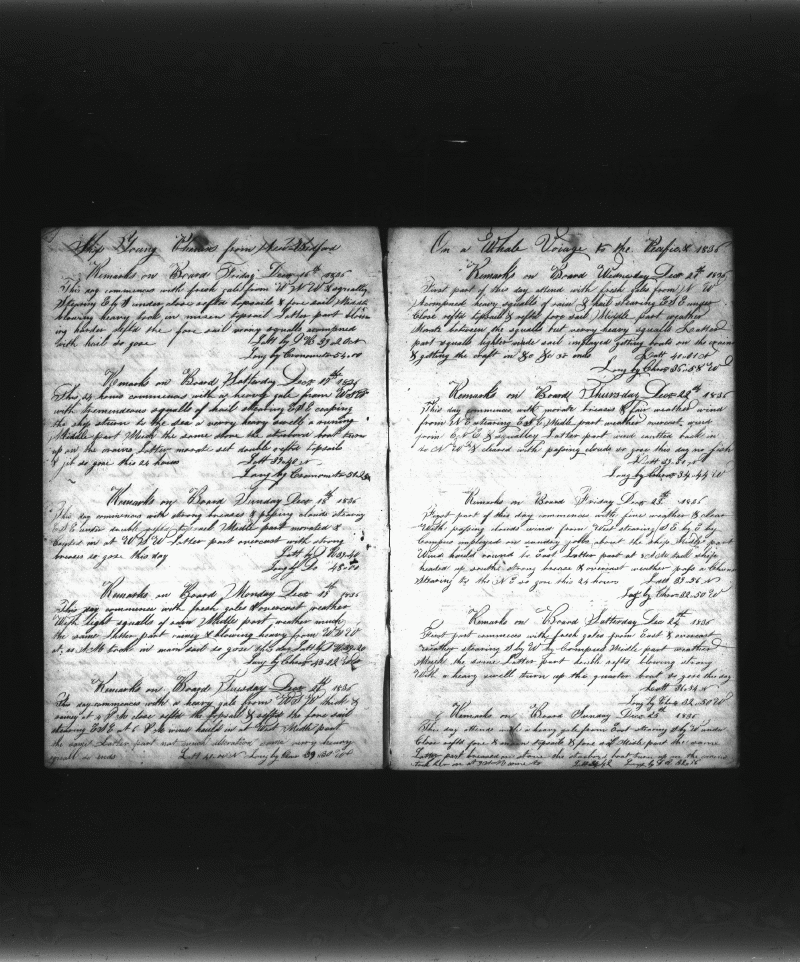 Ship Young Phenix from New Bedford
Remarks on Board Friday Dec 16th 1836
This day commences with fresh gales from W N W & squally
Steering E by S under close reefts topsails & fore sail Middle
blowing heavy took in mizen topsail Latter part
heavy squalls
with hail so gose Latt by 39.20
Long by Cronometer 54.00
Remarks on Board Satterday Dec 17th 1836
This 24 hours commences with a heavy gale from
with tremendeous squalls of hail steering ESE
the ship to the sea a verry heavy swell a runing
Middle part Much the same stove the boat
up on the Latter set double reefts topsails
& jib so gose this 24 hours Latt 39.40 N
Long by Cronometer 51.20
Remarks on Board Sunday Dec 18th 1836
This day commences with strong breeses & passing clouds steering
ESE under double reefts topsails Middle part &
at W N W Latter part overcast with strong
breeses so gose this day Latt by 39.40
Long by Do 48.00
Remarks on Board Monday Dec 19th 1836
This day commences with fresh gales & overcast weather
With light squalls of rain Middle part weather much
the same Latter part rainey & blowing heavy from W N W
at 10 AM took in main sail so gose this day Latt 39.20
Long by Chro 43.22
Remarks on Board Tuesday Dec 1836
This day commences with a heavy gale from WSW thick &
rainey at 4 PM close refts the topsail & refts the fore sail
steering ESE at 8 PM wind hauld in at West Middle part
the same Latter part not much alteration some verry heavy
squalls so ends Latt 40.00 N Long by Chro 39.30
On a Whale Voiage to the Pacific 1836
Remarks on Board Wednesday Dec 1836
First part of this day attend with fresh gales from N W
Accompned heavy squalls of rain & hail steering ESE under
Close refts topsails & refts fore sail Middle part weather
Moderate between the squalls but verry heavy squalls Latter
part squalls lighter made sail imployed getting boats on the cranes
& getting the craft in &c &c so ends Latt 40.01 N
Long by Chro 36.58 W
Remarks on Board Thursday Dec 1836
This day commences with breeses & fair weather wind
from NE steering ESE Midle part weather overcast wind
from ENE & squalley Latter part wind canted back in
to N W & cleared with passing clouds so gose this day no fish
Latt 39.50 N
Long by Chro 34.44 W
Remarks on Board Friday Dec 23th 1836
First part of this day commences with fine weather & clear
With passing clouds wind from steering SE by E by
Compas employed on sunday jobbs about the ship Midle part
Wind hauld round to East Latter part at 8 AM tackt ship
headed up south strong breese & overcast weather pass a
Steering to the NE so gose this 24 hours Latt 38.56 N
Long by Chro 32.50 W
Remarks on Board Satterday Dec 24th 1836
First part commences with fresh gales from East & overcast
weather steering S by W by Compass Midle part weather
Much the same Latter part double refts blowing strong
With a heavy swell turn up the quarter boat so gose this day
Latt 36.34 N
Long by Chro 32.30 W
Remarks on Board Sunday Dec 25th 1836
This day attends with a heavy gale from East steering S by W under
Close refts fore & main topsails & fore sail Midle part the same
Latter part